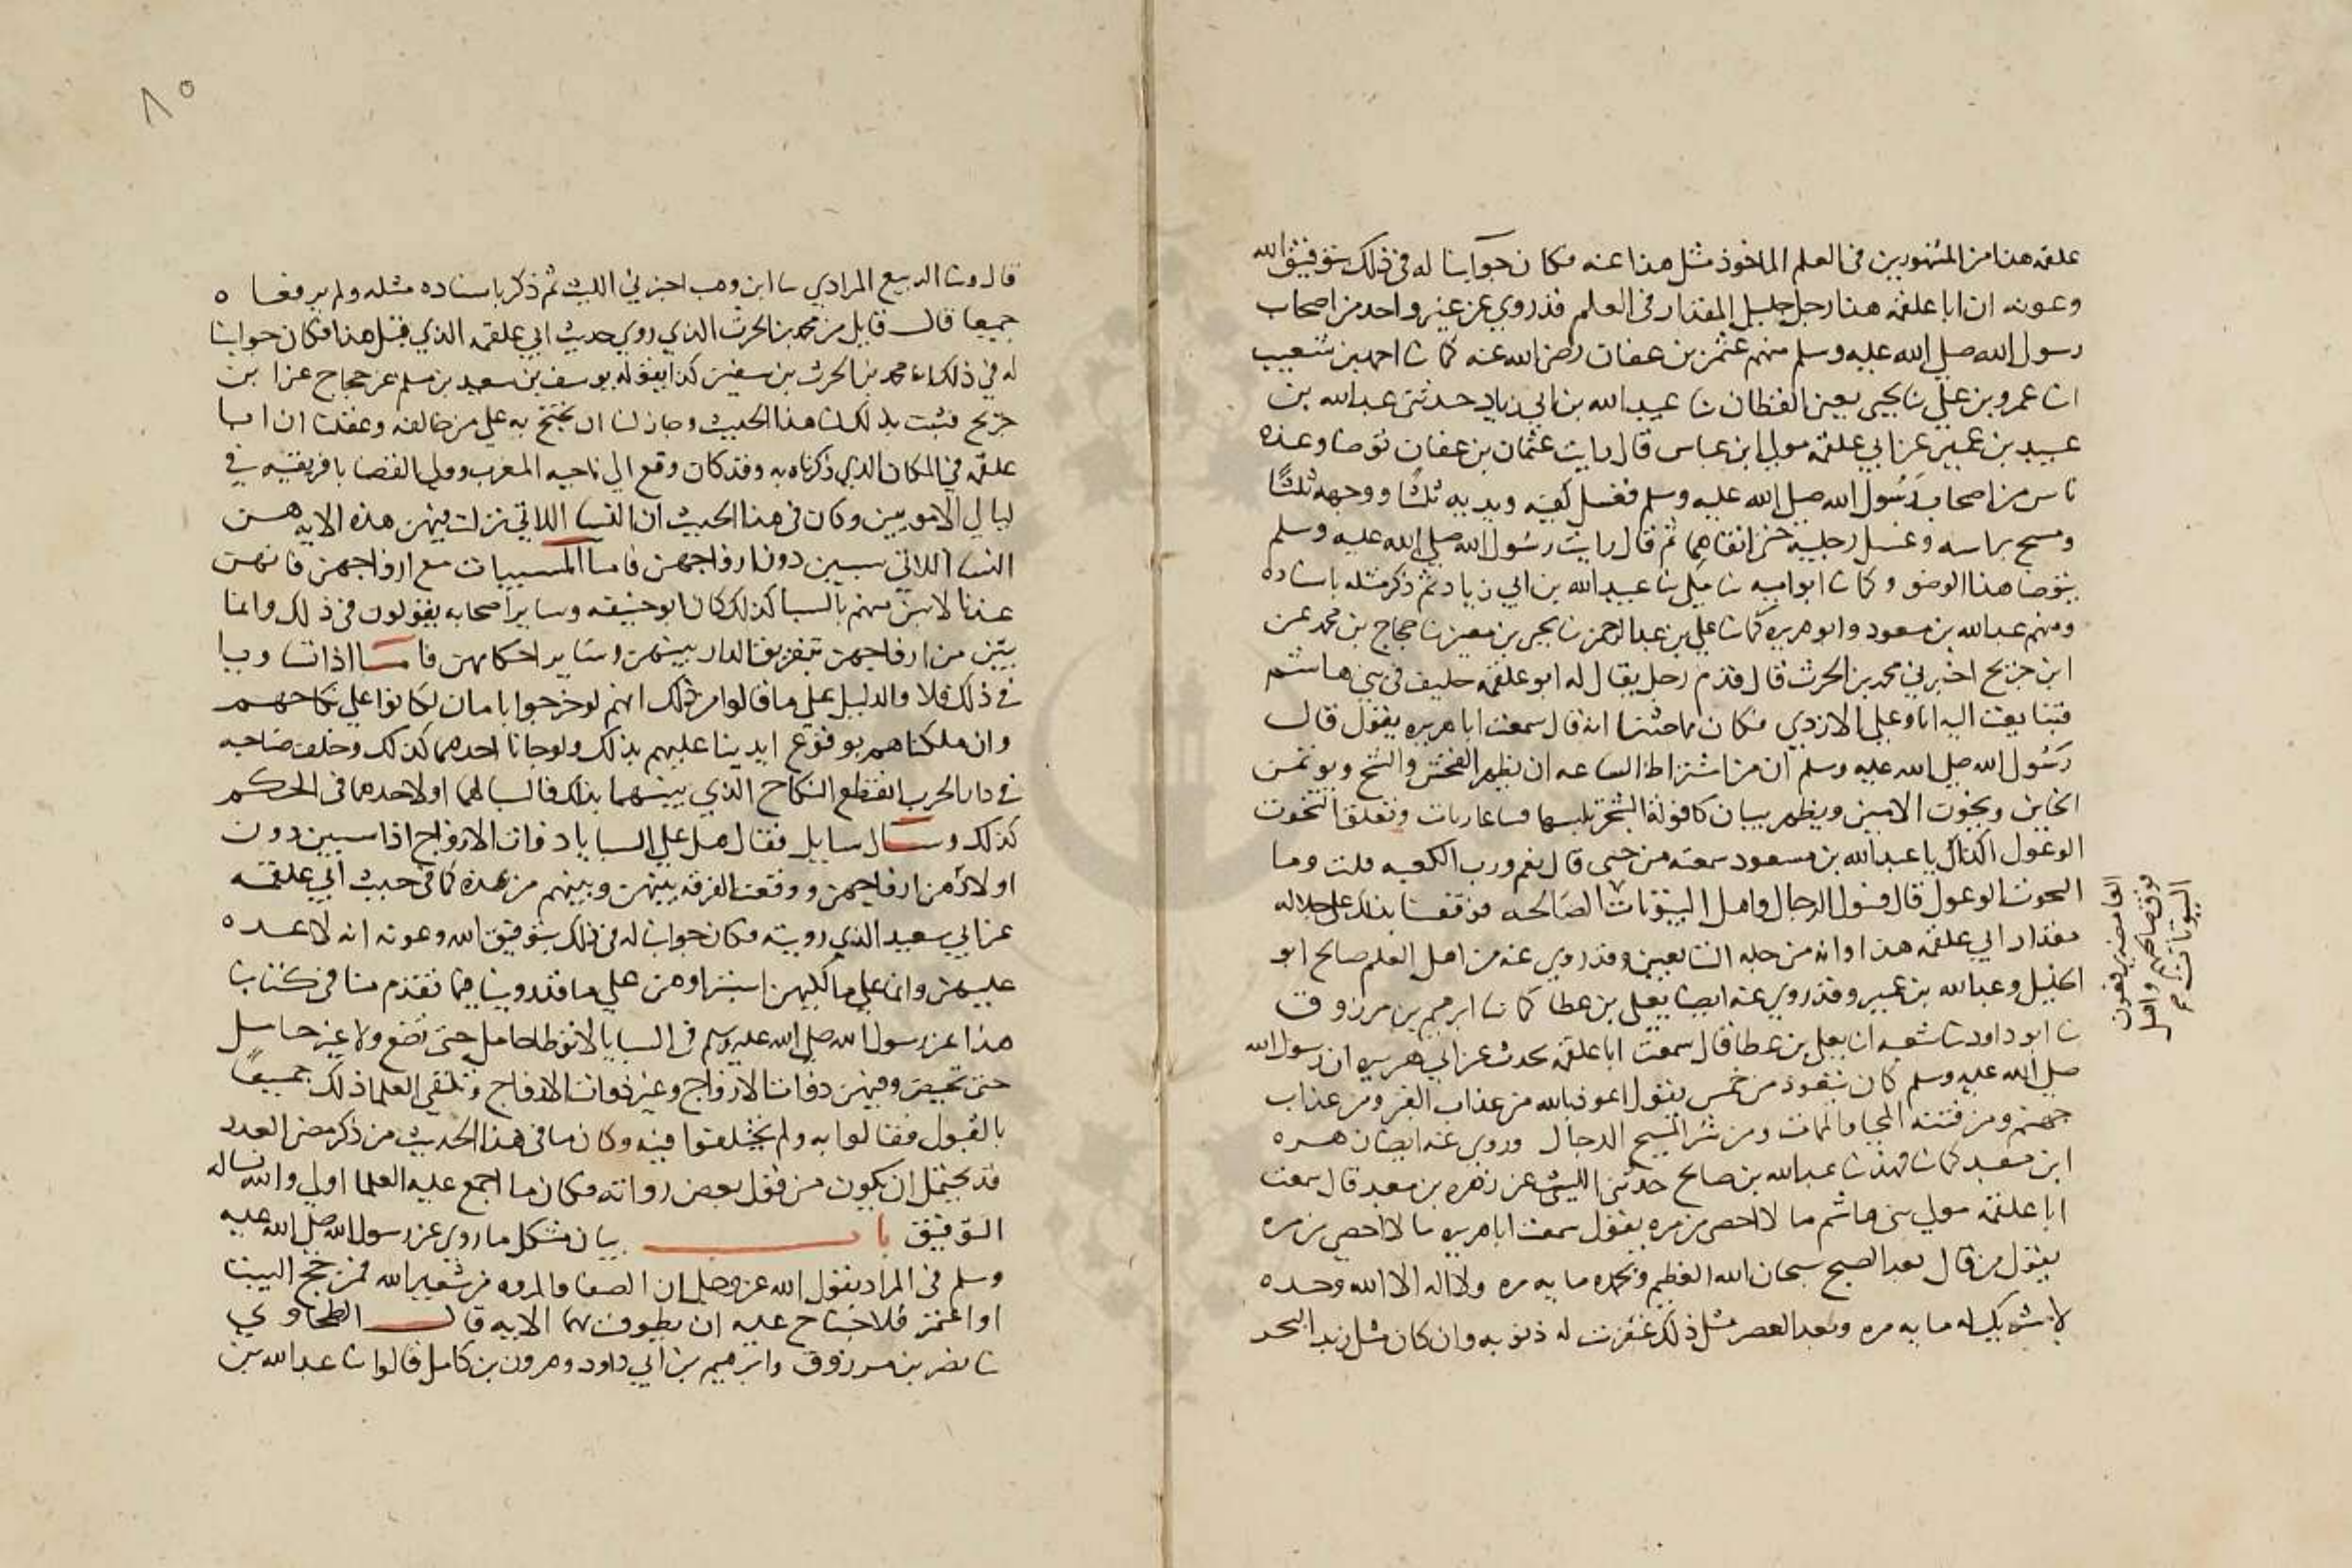 علقمه هذا من المشهورين في العلم الماخوذ مثل هذا عنه فكان جوابنا له في ذلك بتوفيق الله
وعونه ان ابا علقمه هذا رجل جليل المقدار في العلم قد روي عن غير واحد من اصحاب
رسول الله صلي الله عليه وسلم منهم عثمن بن عفان رضي الله عنه كما نا احمد بن شعيب
انا عمرو بن علي نا يحيي يعني القطان نا عبيد الله بن ابي زياد حدثني عبد الله بن
عبيد بن عمير عن ابي علقمه مولي ابن عباس قال رايت عثمان بن عفان توضا وعنده
ناس من اصحاب رسول الله صلي الله عليه وسلم فغسل كفيه ويديه ثلثا ووجهه ثلثا
ومسح براسه وغسل رجليه حتي انقاهما ثم قال رايت رسول الله صلي الله عليه وسلم
يتوضا هذا الوضو وكما نا ابو اميه نا مكي نا عبيد الله بن ابي زياد ثم ذكر مثله باسناده
ومنهم عبد الله بن مسعود وابو هريره كما نا علي بن عبد الرحمن نا يحيي بن معين نا حجاج بن محمد عن
ابن جريج اخبرني محمد بن الحرث قال قدم رجل يقال له ابو علقمه حليف في بني هاشم
فتبايعت اليه انا وعلي الازدي فكان مما حدثنا انه قال سمعت ابا هريره يقول قال
رسول الله صلي الله عليه وسلم ان من اشتراط الساعه ان يظهر الفحش والشح ويوتمن
الخاين ويخون الامين ويظهر بيان كافوله الشجر يلبسها نسا عاريات وتعلق التخوت
الوعول اكذاك يا عبد الله بن مسعود سمعته من حبي قال نعم ورب الكعبه قلت وما
التحوت الوعول قال فسول الرجال واهل البيوتات الصالحه فوقفنا بذلك علي جلاله
مقدار ابي علقمه هذا وانه من جله التابعين وقد روي عنه من اهل العلم صالح ابو
الخليل وعبد الله بن عمير وقد روي عنه ايضا يعلي بن عطا كما نا ابرهيم بن مرزوق
نا ابو داود نا شعبه ان يعلي بن عطا قال سمعت ابا علقمه يحدث عن ابي هريره ان رسول الله
صلي الله عليه وسلم كان يتعوذ من خمس يقول اعوذ بالله من عذاب القبر ومن عذاب
جهنم ومن فتنه المحيا والممات ومن شر المسيح الدجال وروي عنه ايضا زهره
ابن معبد كما نا فهد نا عبد الله بن صالح حدثني الليث عن زهره بن معبد قال سمعت
ابا علقمه مولي بني هاشم ما لا احصي من مره يقول سمعت ابا هريره ما لا احصي من مره
يقول من قال بعد الصبح سبحان الله العظيم وبحمده مايه مره ولا اله الا الله وحده
لا شريك له مايه مره وبعد العصر مثل ذلك غفرت له ذنوبه وان كان مثل زبد البحر
البيوتات
٨٥
قال ونا الربيع المرادي نا ابن وهب اخبرني الليث ثم ذكر باسناده مثله ولم يرفعا ه
جميعا قال قايل من محمد بن الحرث الذي روي حديث ابي علقمه الذي قبل هذا فكان جوابنا
له في ذلك انه محمد بن الحرث بن سفين كذا يقوله يوسف بن سعيد بن مسلم عن حجاج عن ابن
جريج فثبت بذلك لنا هذا الحديث وجاز لنا ان نحتج به علي من خالفه وعقلنا ان ابا
علقمه في المكان الذي ذكرناه به وقد كان وقع الي ناحيه المغرب وولي القضا بافريقيه في
ليالي الامويين وكان في هذا الحديث ان النسا اللاتي نزلت فيهن هذه الايه هن
النسا اللاتي سبين دون ازواجهن فاما المسبيات مع ازواجهن فانهن
عندنا لا يبن منهم بالسبا كذلك كان ابو حنيفه وساير اصحابه يقولون في ذلك وانما
يبن من ازواجهن بتفريق الدار بينهن وساير احكامهن فاما اذا تساويا
في ذلك فلا والدليل علي ما قالوا من ذلك انهم لو خرجوا بامان لكانوا علي نكاحهم
وان ملكناهم بوقوع ايدينا عليهم بذلك ولو جانا احدهما كذلك وخلف صاحبه
في دار الحرب انقطع النكاح الذي بينهما بذلك فالسبا لهما او لاحدهما في الحكم
كذلك وسال سايل فقال هل علي السبايا ذوات الازواج اذا سبين دون
ازواجهن ووقعت الفرقه بينهن وبينهم من عده كما في حديث ابي علقمه
عن ابي سعيد الذي رويته فكان جوابنا له في ذلك بتوفيق الله وعونه انه لا عده
عليهن وانما علي مالكيهن استبراوهن علي ما قد روينا فيما تقدم منا في كتابنا
هذا عن رسول الله صلي الله عليه وسلم في السبايا لا توطا حامل حتي تضع ولا غير حامل
حتي تحيض وفيهن ذوات الازواج وغير ذوات الازواج وتلقي العلما ذلك جميعا
بالقبول فقالوا به ولم يختلفوا فيه وكان ما في هذا الحديث من ذكر مضي العدد
قد يحتمل ان يكون من قول بعض رواته فكان ما اجمع عليه العلما اولي والله نساله
التوفيق باب بيان مشكل ما روي عن رسول الله صلي الله عليه
وسلم في المراد بقول الله عز وجل ان الصفا والمروه من شعير الله فمن حج البيت
او اعتمر فلا جناح عليه ان يطوف بهما الايه قال الطحاوي
نا نصر بن مرزوق وابرهيم بن ابي داود وهرون بن كامل قالوا نا عبد الله بن